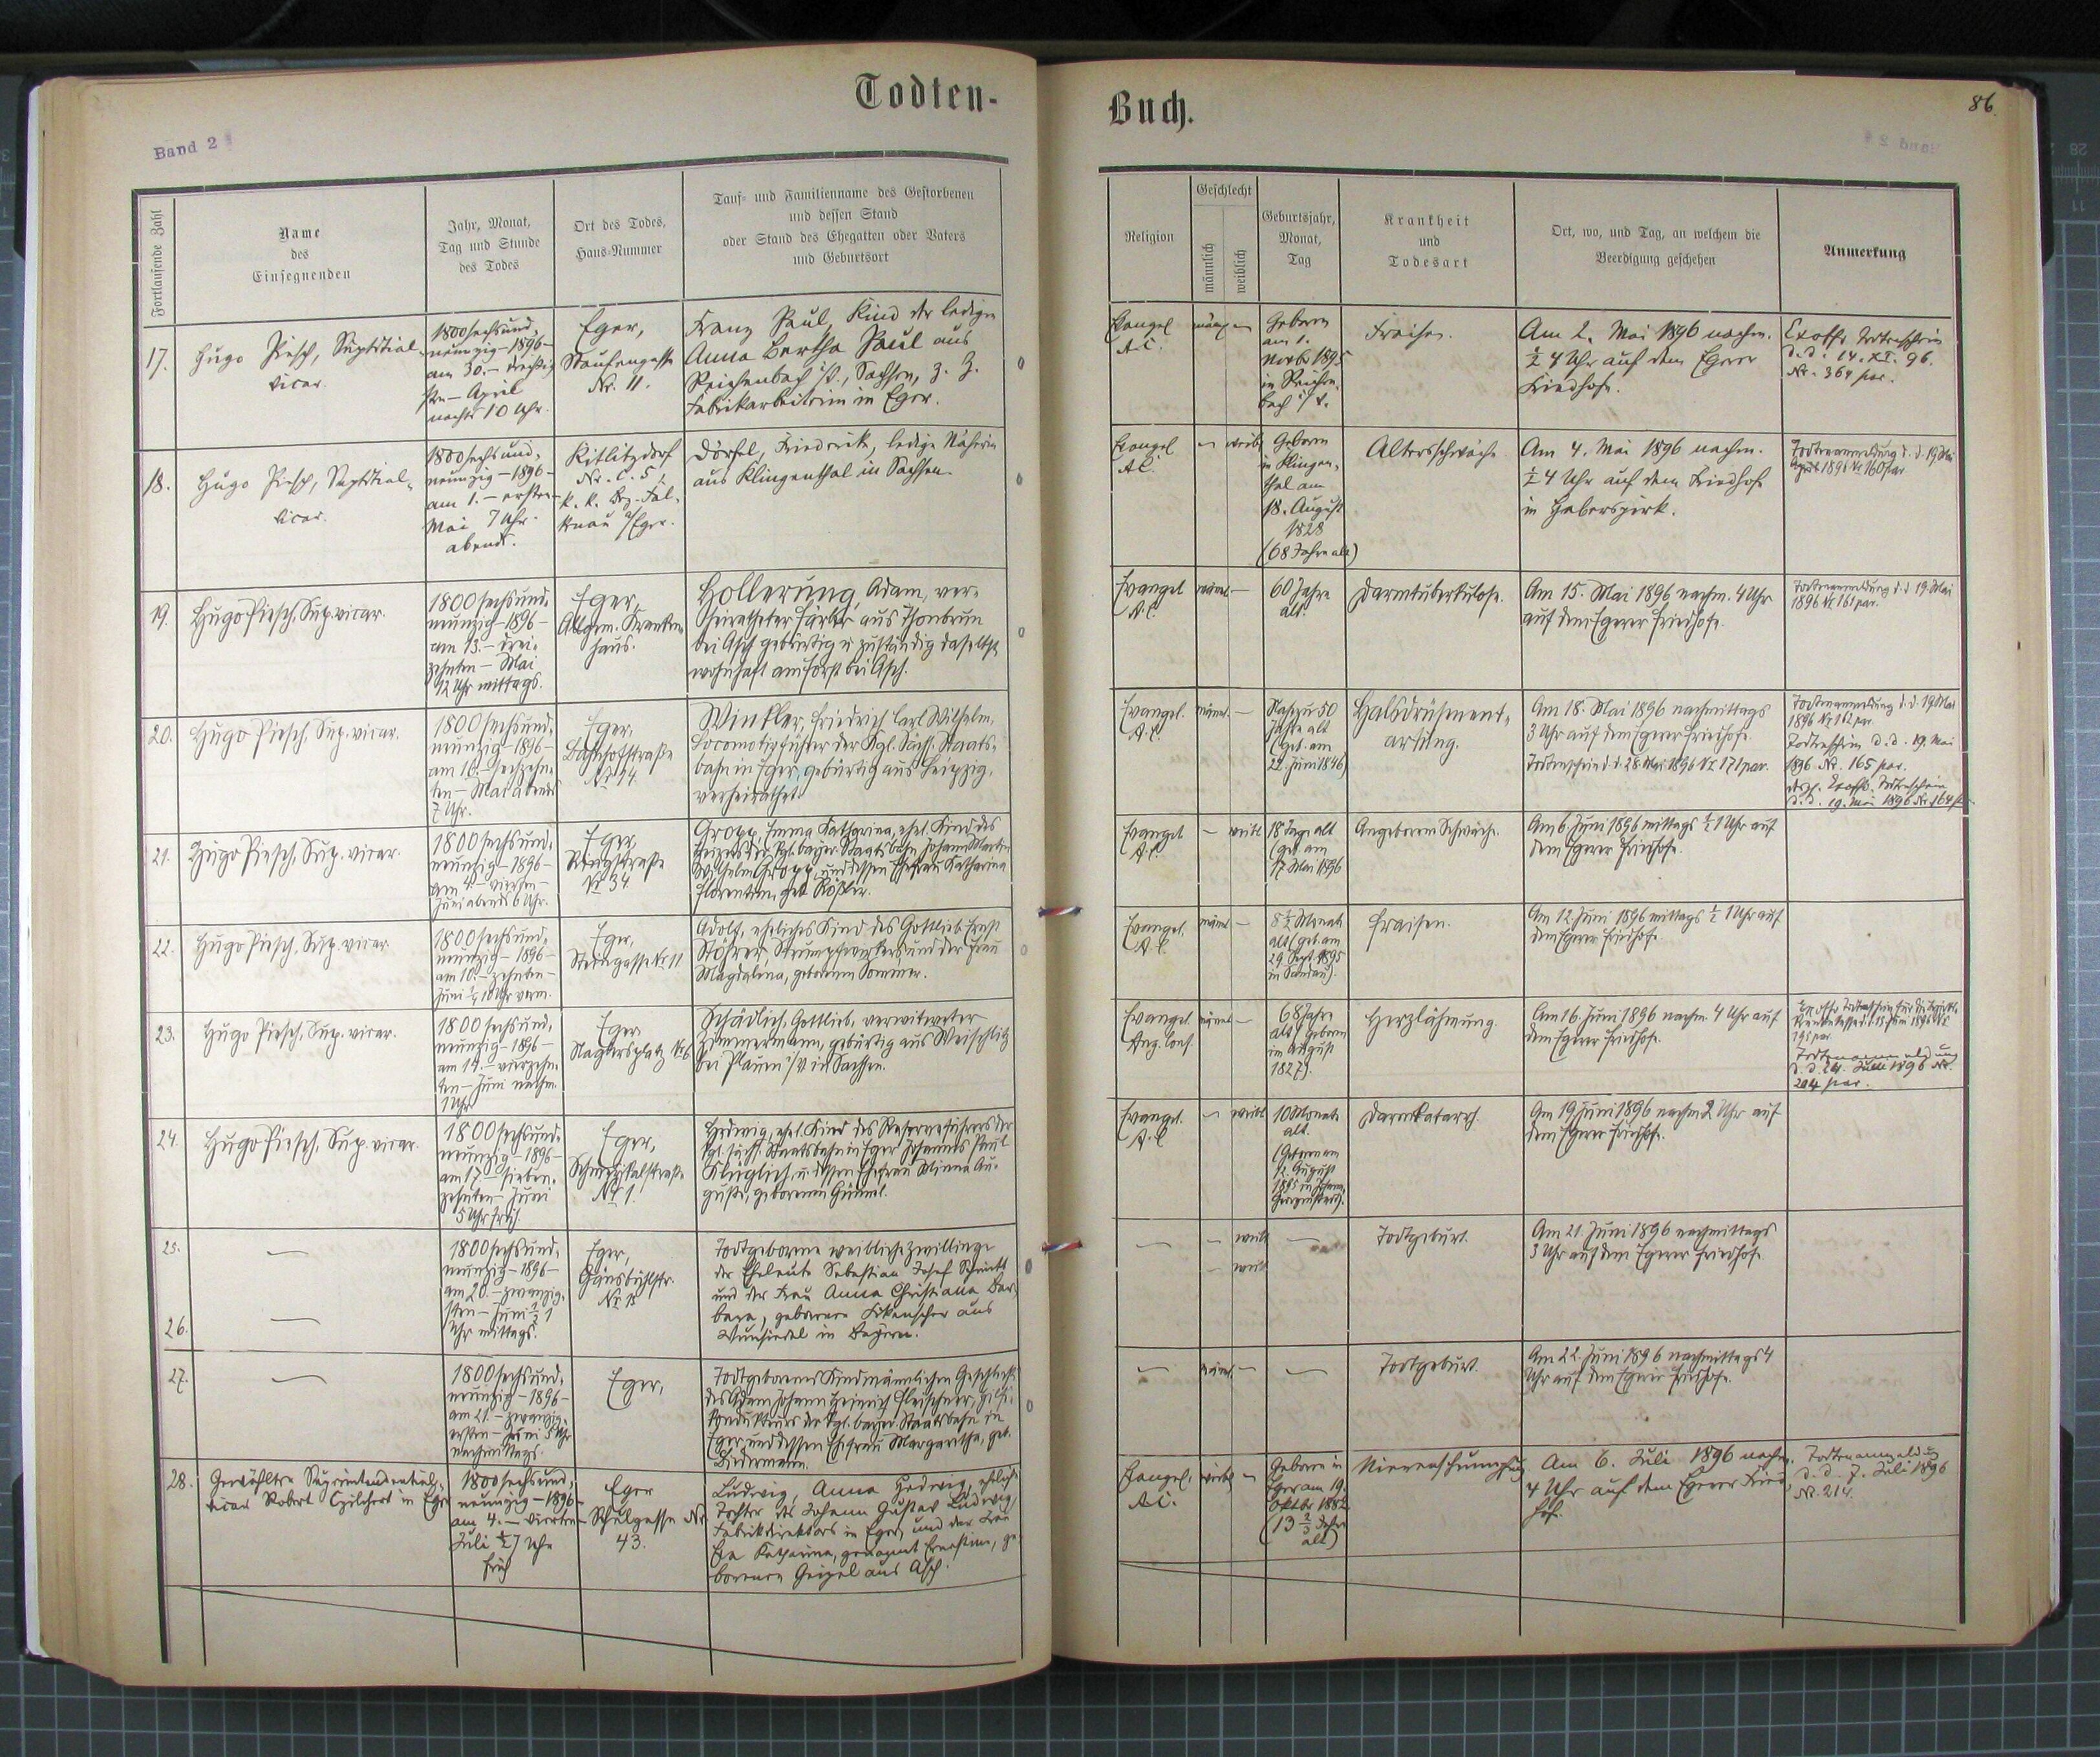 Todten-
Band 2
Fortlaufende Zahl
Name
des
Einsegnenden
Jahr, Monat,
Tag und Stunde
des Todes
Ort des Todes,
Haus-Nummer
Tauf- und Familienname des Gestorbenen
und dessen Stand
oder Stand des Ehegatten oder Vaters
und Geburtsort
17.
Hugo Piesch,
vicar.
1800 sechsund-
neunzig-1896-
am 30.-
sten-April
nachts 10 Uhr.
Eger,
Staufengasse
Nr. 11.
Franz Paul, Kind der ledigen
Anna Bertha Paul aus
Reichenbach i/V., Sachsen, z. Z.
Fabrikarbeiterin in Eger.
18.
Hugo Piesch,
vicar.
1800 sechsund-
neunzig-1896-
am 1.-ersten-
Mai 7 Uhr
abends.
Kitlitzdorf
Nr. C. 5,
k. k. Bez. Fal-
kenau a/Eger.
Dörfel, Friederike, ledige Näherin
aus Klingenthal in Sachsen.
19.
Hugo Piesch, Sup. vicar.
1800 sechsund-
neunzig-1896-
am 13.-drei-
zehnten-Mai
12 Uhr mittags.
Eger,
Allgem. Kranken-
haus.
Hollerung, Adam, ver-
heiratheter Färber aus Thonbrun
bei Asch gebürtig u. zuständig daselbst,
wohnhaft am Forst bei Asch.
20.
Hugo Piesch, Sup. vicar.
1800 sechsund-
neunzig-1896-
am 16.-sechzehn-
ten-Mai abends
7 Uhr.
Eger,
Bahnhofstraße
Nr. 14.
Winkler, Friedrich Carl Wilhelm,
Locomotivführer der Kgl. Sächs. Staats-
bahn in Eger, gebürtig aus Leipzig,
verheirathet.
21.
Hugo Piesch, Sup. vicar.
1800 sechsund-
neunzig-1896-
am 4.-vierten-
Juni abends 6 Uhr.
Eger,
Ringstraße
Nr. 34
Gropp, Emma Katharina, ehel. Kind des
Heizers der Kgl. bayer. Staatsbahn Johann Martin
Wilhelm Gropp, und dessen Ehefrau Katharina
Florentine, geb. Rößler.
22.
Hugo Piesch, Sup. vicar.
1800 sechsund-
neunzig-1896-
am 10.-zehnten-
Juni 10 Uhr vorm.
Eger,
Steingasse Nr. 11
Adolf, eheliches Kind des Gottlieb Ernst
Stöhrer, Strumpfwirkers und der Frau
Magdalena, geborenen Sommer.
23.
Hugo Piesch, Sup. vicar.
1800 sechsund-
neunzig-1896-
am 14.-vierzehn-
ten-Juni nachm.
1 Uhr
Eger
Schädlich, Gottlieb, verwitweter
Zimmermann, gebürtig aus Weischlitz
bei Plauen i/V. in Sachsen.
24.
Hugo Piesch, Sup. vicar.
1800 sechsund-
neunzig-1896-
am 17.-sieben-
zehnten-Juni
5 Uhr früh.
Eger,
Nr. 1
Hedwig, ehel. Kind des Reserveführers der
Kgl. sächs. Staatsbahn in Eger Johannes Paul
Klüglich, u. dessen Ehefrau Minna Au-
guste, geborenen Gümmel.
25.
26.
1800 sechsund-
neunzig-1896-
am 20.-zwanzig-
sten-Juni ½ 1
Uhr mittags.
Eger,
Gänsbühlstr.
Todtgeborene weibliche Zwillinge
der Eheleute Sebastian Josef Schmidt
und der Frau Anna Christiana Bar-
bara, geborenen aus
Wunsiedel in Bayern.
27.
1800 sechsund-
neunzig-1896-
am 21.-zwanzig-
ersten-Juni 5 Uhr
nachmittags.
Eger,
Todtgeborenes Kind männlichen Geschlechts
des Adam Johann Heinrich Fleischner, Hilfs-
kondukteurs der Kgl. bayer. Staatsbahn in
Eger und dessen Ehefrau Margaretha, geb.
Biedermann.
28.
Gewählter Superintendential-
vicar Robert in Eger
1800 sechsund-
neunzig-1896-
am 4.-vierten-
Juli ½ 7 Uhr
früh
Eger
Schulgasse Nr.
43.
Ludwig, Anna Hedwig, eheliche
Tochter des Johann Gustav Ludwig,
Fabrikdirektors in Eger, und der Frau
Eva Katharina, genannt Ernestine, ge-
borenen Geipel aus Asch.
Buch.
86.
Religion
Geschlecht
männlich
weiblich
Geburtsjahr,
Monat,
Tag
Krankheit
und
Todesart
Ort, wo, und Tag, an welchem die
Beerdigung geschehen
Anmerkung
Evangel.
A.C.
männl.
Geboren
am 1.
Novb. 1895
in Reichen-
bach i/V.
Fraisen.
Am 2. Mai 1896 nachm.
½ 4 Uhr auf dem Egerer
Friedhofe.
Exoffo Todtenschein
d.d. 14. XI. 96.
Nr. 364 par.
Evangel.
A.C.
weibl.
Geboren
in Klingen-
thal am
18. August
1828
(68 Jahre alt)
Altersschwäche
Am 4. Mai 1896 nachm.
½ 4 Uhr auf dem Friedhofe
in Haberspirk.
Todtenanmeldung d. d. 19. Mai
1896 Nr. 160 par.
Evangel.
A.C.
männl.
60 Jahre
alt.
Darmtuberkulose.
Am 15. Mai 1896 nachm. 4 Uhr
auf dem Egerer Friedhofe.
Todtenanmeldung d. d. 19. Mai
1896 Nr. 161 par.
Evangel.
A.C.
männl.
Nahezu 50
Jahre alt
(geb. am
22. Juni 1846)
Halsdrüsenent-
artung.
Am 18. Mai 1896 nachmittags
3 Uhr auf dem Egerer Friedhofe.
Todtenschein d. d. 28. Mai 1896 Nr. 171 par.
Todtenanmeldung d. d. 19. Mai
1896 Nr. 162 par.
Todtenschein d. d. 19. Mai
1896 Nr. 165 par.
Exoffo Todtenschein
d. d. 19. Mai 1896 Nr. 164
Evangel.
A.C.
weibl.
18 Tage alt
(geb. am
17. Mai 1896
Angeborene Schwäche.
Am 6. Juni 1896 mittags ½ 1 Uhr auf
dem Egerer Friedhofe.
Evangel.
A.C.
männl.
8½ Monate
alt (geb. am
29. Sept. 1895
Fraisen.
Am 12. Juni 1896 mittags ½ 1 Uhr auf
dem Egerer Friedhofe.
Evangel.
Aug. Conf.
männl.
68 Jahre
alt (geboren
im August
1827).
Herzlähmung.
Am 16. Juni 1896 nachm. 4 Uhr auf
dem Egerer Friedhofe.
Todtenanmeldung
204 par.
Evangel.
A.C.
weibl.
10 Monate
alt.
(Geboren am
12. August
1895 in Johann-
georgenstadt).
Darmkatarrh.
Am 19. Juni 1896 nachm. 2 Uhr auf
dem Egerer Friedhofe.
weibl.
weibl.
Todtgeburt.
Am 21. Juni 1896 nachmittags
3 Uhr auf dem Egerer Friedhofe.
männl.
Todtgeburt.
Am 22. Juni 1896 nachmittags 4
Uhr auf dem Egerer Friedhofe.
Evangel.
A.C.
weibl.
Geboren in
Eger am 19.
Oktbr. 1882
(13 ⅔ Jahre
alt)
Nierenschrumpfung
Am 6. Juli 1896 nachm.
4 Uhr auf dem Egerer Fried-
hof.
Todtenanmeldung
d. d. 7. Juli 1896
Nr. 214.